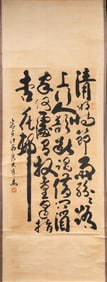 清明時節雨紛々路
上行人欲斷魂借問酒
家何處有牧童遙指
杏花邨